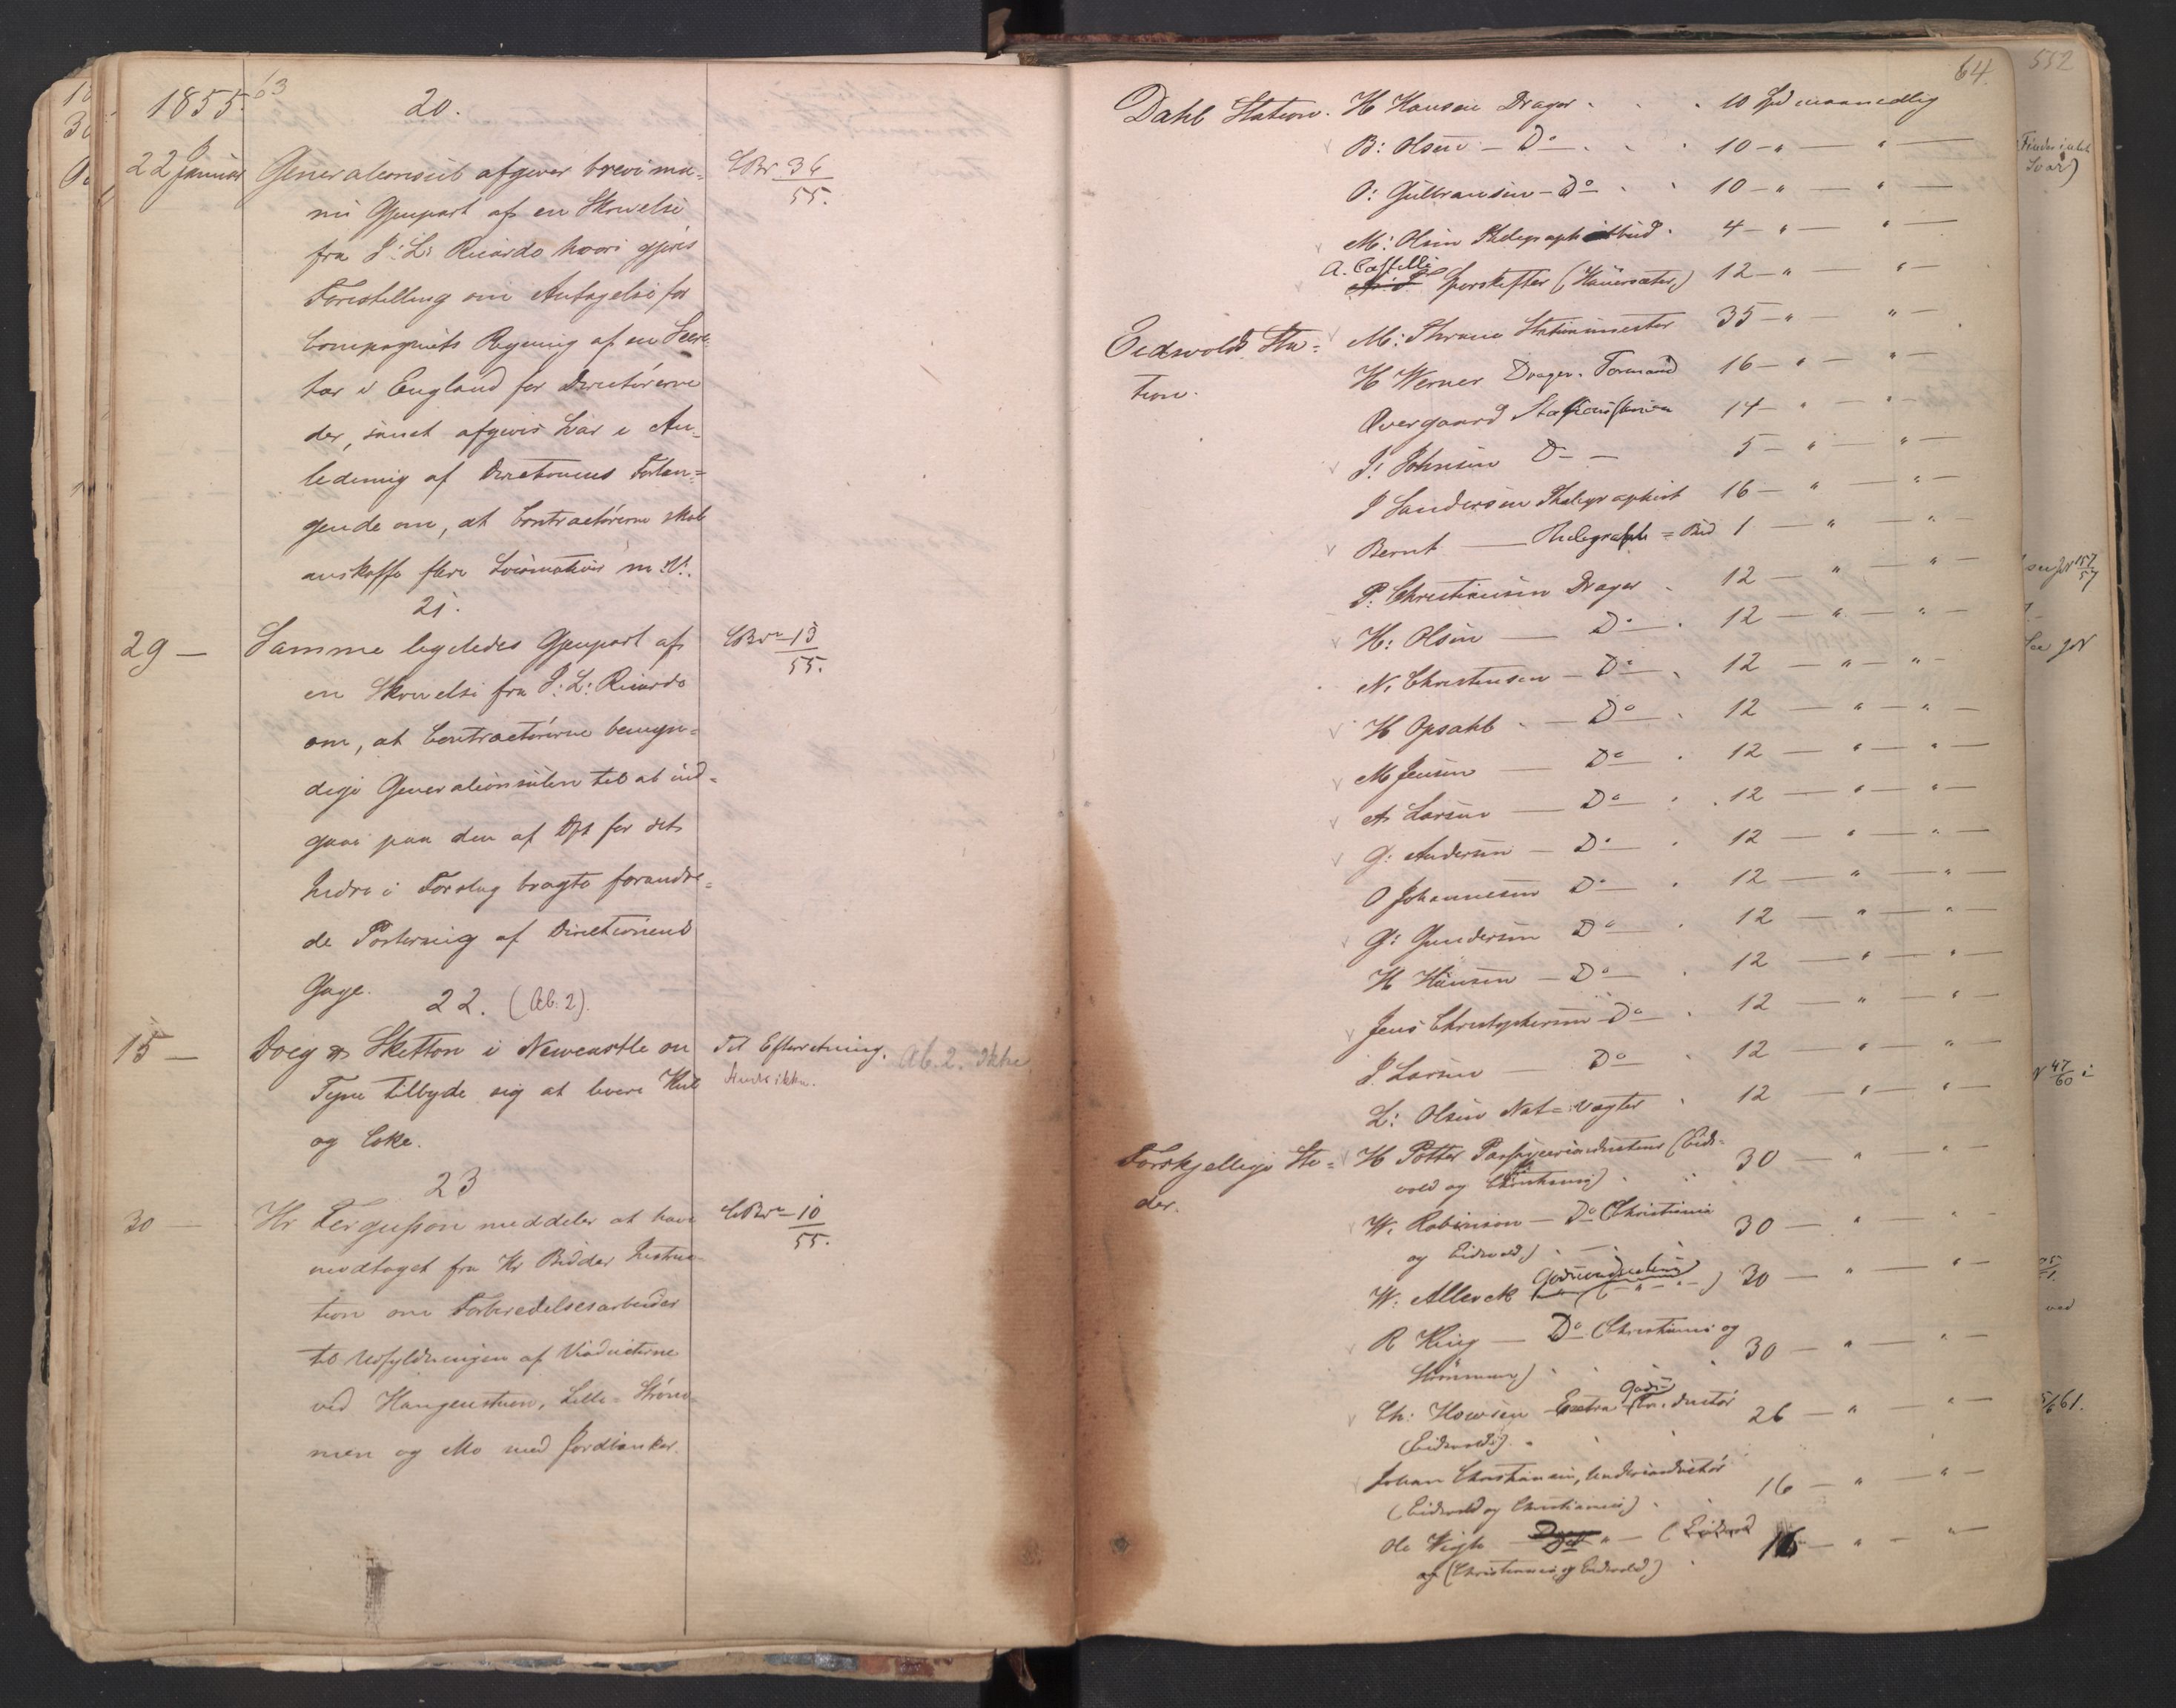 1855.
63
20.
22 Januar Generalconsul afgiver brevi ma-
nu Gjenpart af en Skrivelse
fra J: L: Ricardo hvori gjøres
Forestilling om Antagelse for
Compagniets Regning af en Secre-
tær i England for Directørerne
der, samt afgives Svar i An-
ledning af Directionens Forlan-
gende om, at Contractørerne skal
anskaffe flere Locomotiver m. V.
CBr 36
55.
21.
29 — Samme ligeledes Gjenpart af
en Skrivelse fra J: L: Ricardo
om, at Contractørerne bemyn-
dige Generalconsulen til at ind-
gaae paa den af Dpt for det
Indre i Forslag bragte forandre-
de Postering af Directionens
Gage.
CBr 13
55.
22. (Ab. 2).
15 — Doeg & Skelton i Newcastle on
Tyne tilbyde sig at levere Kul
og Coke.
Til Efterretning.
Ab. 2. Ikke
23
30 — Hr Fergusson meddeler at have
modtaget fra Hr Bidder Instruc-
tion om Forberedelsesarbeider
til Udfyldningen af Viaducterne
ved Haugenstuen, Lille-Strøm-
men og Mo med Jordbanker.
CBr 10
55.
64.
Dahl Station. H Hansen Drager 10 Spd maanedlig
B: Olsen — Do 10 — " — " —
O: Gulbransen — Do 10 — " — " —
M: Olsen Thelegraphbud 4 — " — " —
A. Castelli
Sporskifter (Hauersæter) 12 — " — " —
Eidsvold Sta-
tion.
M: Thrane Stationsmester 35 — " — " —
H Werner Drager-Formand 16 — " — " —
Overgaard 14 — " — " —
J: Johnsen D — — 5 — " — " —
J Sandersen Thelegraphist 16 — " — " —
Bernt — Thelegraph-Bud 1 — " — " —
P: Christiansen Drager 12 — " — " —
H: Olsen — Do 12 — " — " —
N. Christensen — Do 12 — " — " —
H Opsahl — Do 12 — " — " —
M Jensen — Do 12 — " — " —
A Larsen — Do 12 — " — " —
G: Andersen — Do 12 — " — " —
O Johannesen Do 12 — " — " —
G: Gundersen Do 12 — " — " —
H Hansen — Do 12 — " — " —
Jens Christophersen Do 12 — " — " —
J. Larsen — Do 12 — " — " —
L: Olsen Nat-vægter 12 — " — " —
Forskjellige Ste-
der.
H Potter Passagerconducteur (Eids-
vold og Christiania) 30 — " — " —
W. Robinson — Do (Christiania
og Eidsvold) 30 — " — " —
W: Allcock Godsconducteur (— " — " —) 30 — " — " —
R King — Do (Christiania og
Strømmen) 30 — " — " —
Ch: Howsen Extra Gods-
ductør
(Eidsvold) 26 — " — " —
Johan Christiansen, Underconductør
(Eidsvold og Christiania) 16 — " — " —
Ole Vigh — Do " — (Eidsvold
og (Christiania og Eidsvold) 16 — " — " —
552
Svar)
157
57
47
60
61.